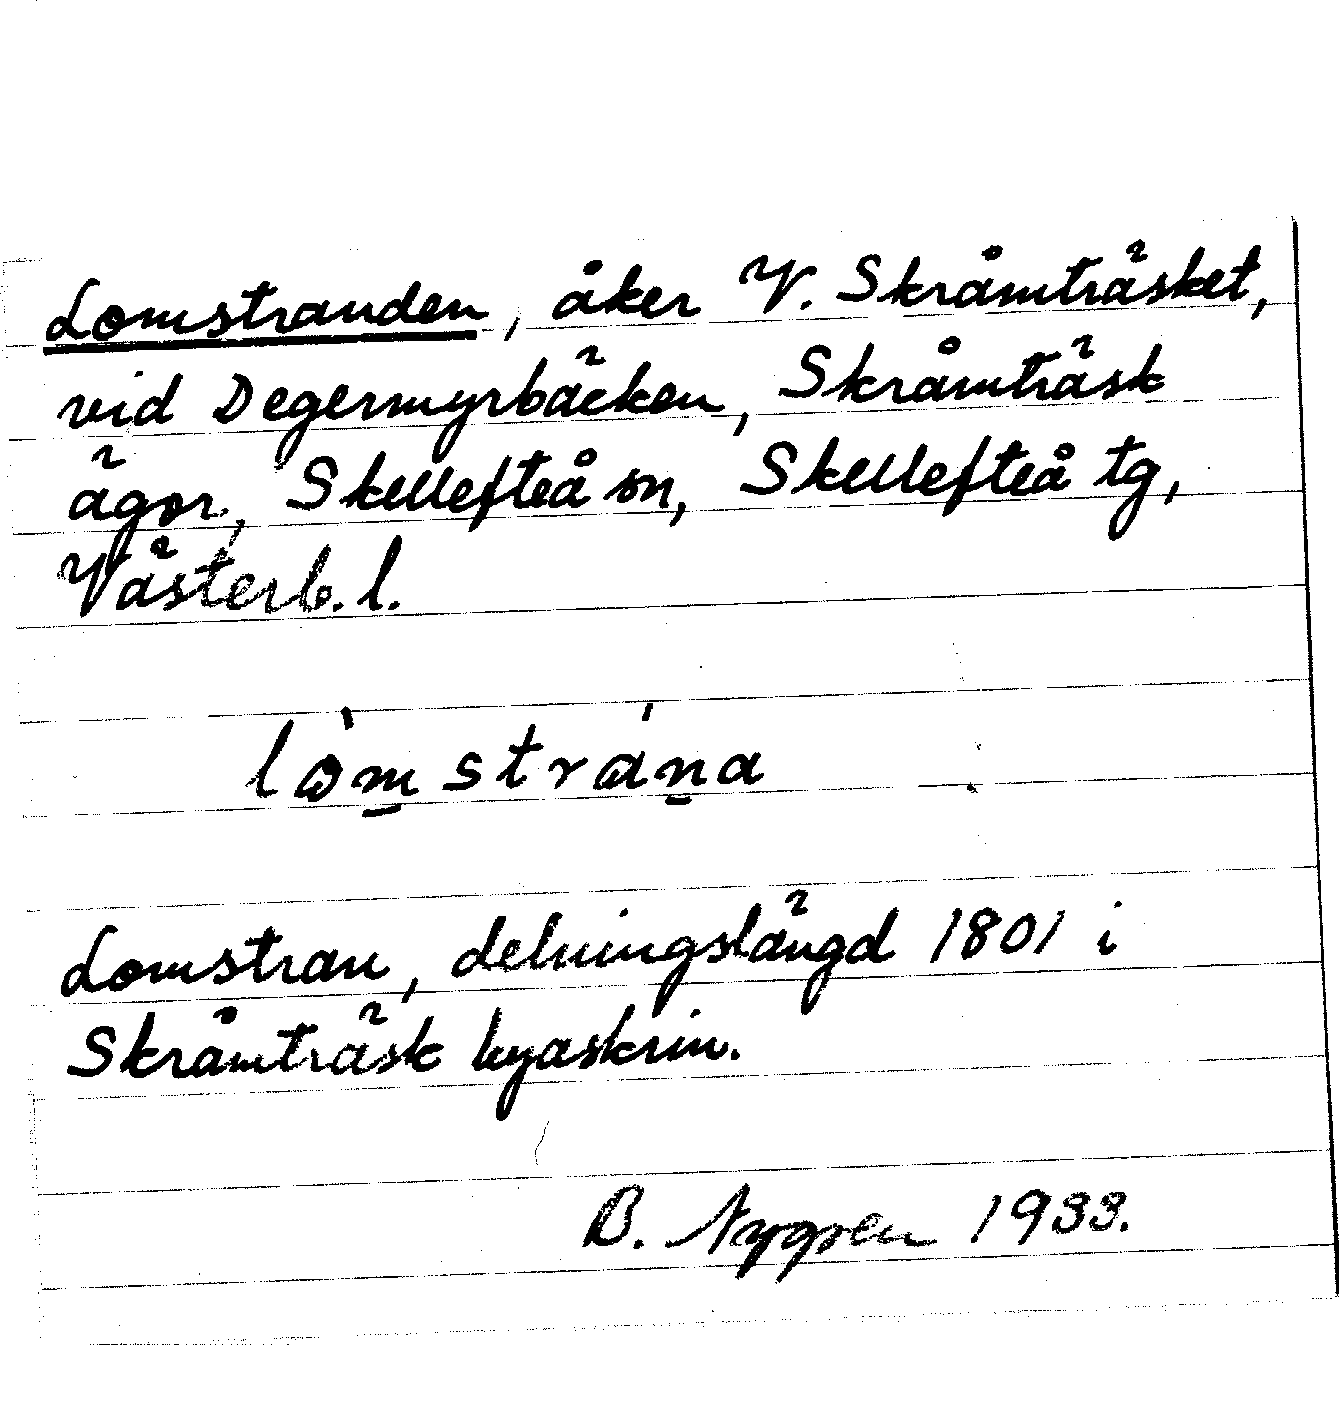 Lomstranden, åker V. Skråmträsket,
vid Degermyrbäcken, Skråmträsk
ägor, Skellefteå sn, Skellefteå tg,
Västerb. l.
lòm̲strán̲a
Lomstran, delningslängd 1801 i
Skråmträsk byaskrin.
B. Nygren 1933.